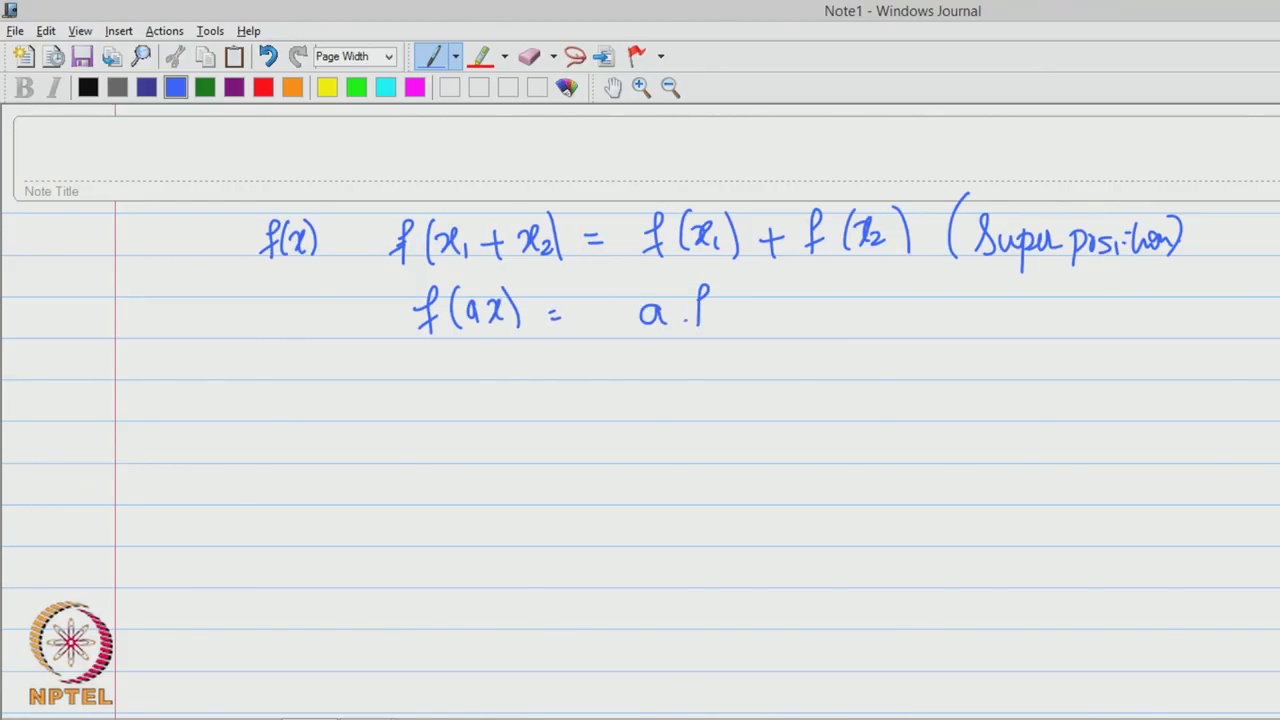 Note1 - Windows Journal
File Edit View Insert Actions Tools Help
Page Width
B I
Note Title
f(x) f(x₁ + x₂) = f(x₁) + f(x₂) (Superposition)
f(ax) = a . f
NPTEL